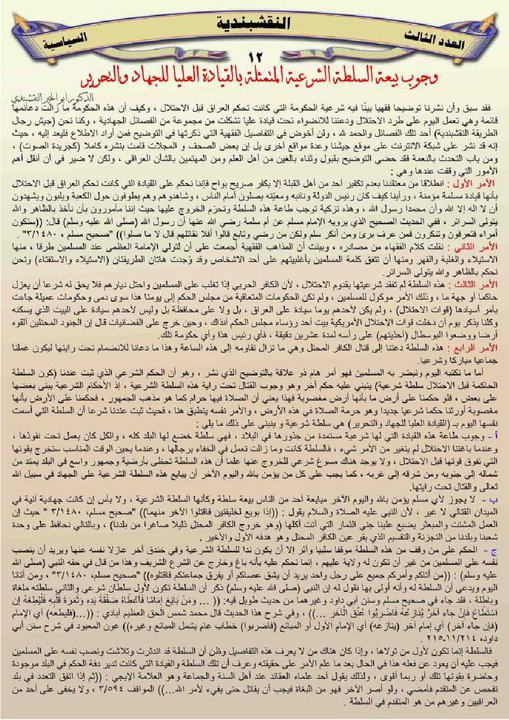 النقشبندية
العدد الثالث
السياسية
١٢
وجوب بيعة السلطة الشرعية المتمثلة بالقيادة العليا للجهاد والتحرير
الدكتور ابو الخير النقشبندي
فقد سبق وأن نشرنا توضيحا فقهيا بينّا فيه شرعية الحكومة التي كانت تحكم العراق قبل الاحتلال ، وكيف أن هذه الحكومة ما زالت دعائمها
قائمة وهي تعمل اليوم على طرد الاحتلال ودعتنا للانضواء تحت قيادة عليا تشكلت من مجموعة من الفصائل الجهادية ، وكنا نحن (جيش رجال
الطريقة النقشبندية) أحد تلك الفصائل والحمد لله ، ولن أخوض في التفاصيل الفقهية التي ذكرتها في التوضيح فمن أراد الاطلاع فليعد إليه ، حيث
إنه قد نشر على شبكة الانترنت على موقع جيشنا وعدة مواقع أخرى بل إن بعض الصحف و المجلات قامت بنشره كاملا (كجريدة الصوت) ،
ومن باب التحدث بالنعمة فقد حضي التوضيح بقبول وثناء بالغين من أهل العلم ومن المهتمين بالشأن العراقي ، ولكن لا ضير في أن أنقل أهم
الأمور التي وقفت عندها وهي :
الأمر الأول : انطلاقا من معتقدنا بعدم تكفير أحد من أهل القبلة إلا بكفر صريح بواح فإننا نحكم على القيادة التي كانت تحكم العراق قبل الاحتلال
بأنها قيادة مسلمة مؤمنة ، ورأينا كيف كان رئيس الدولة ونائبه ومعيته يصلون أمام الناس ، وشاهدوهم وهم يطوفون حول الكعبة ويلبون ويشهدون
أن لا اله إلا الله وأن محمدا رسول الله ، وهذه تزكية توجب طاعة هذه السلطة وتحرّم الخروج عليها حيث إننا مأمورون بأن نأخذ بالظاهر والله
يتولى السرائر، ففي الحديث الصحيح الذي يرويه الإمام مسلم عن أم سلمة رضي الله عنها أن رسول الله (صلى الله عليه وسلم) قال: ((ستكون
أمراء فتعرفون وتنكرون فمن عرف برئ ومن أنكر سلم ولكن من رضي وتابع قالوا أفلا نقاتلهم قال لا ما صلوا)) "صحيح مسلم ، ٣/١٤٨٠"
الأمر الثاني : نقلت كلام الفقهاء من مصادره ، وبينت أن المذاهب الفقهية أجمعت على أن لتولي الإمامة العظمى عند المسلمين طرقا ، منها
الاستيلاء والغلبة والقهر، ومنها أن تتفق كلمة المسلمين بأغلبيتهم على أحد الأشخاص وقد وُجدت هاتان الطريقتان (الاستيلاء والاستفتاء) ونحن
نحكم بالظاهر والله يتولى السرائر.
الأمر الثالث : هذه السلطة لم تفقد شرعيتها بقدوم الاحتلال ، لأن الكافر الحربي إذا تغلب على المسلمين واحتل ديارهم فلا يحق له شرعا أن يعزل
حاكما أو جهة ما ، وذلك الأمر موكول للمسلمين ، ولم تكن الحكومات المتعاقبة من مجلس الحكم إلى يومنا هذا سوى دمى وحكومات عميلة جاءت
بأمر أسيادها (قوات الاحتلال) ، ولم يكن لأحدهم يوما سيادة على العراق ، بل ولا على محافظة بل وليس لأحدهم سيادة على البيت الذي يسكنه
وكلنا يذكر يوم أن دخلت قوات الاحتلال الأمريكية بيت أحد رؤساء مجلس الحكم آنذاك ، وحين خرج على الفضائيات قال إن الجنود المحتلين ألقوه
أرضا ووضعوا البوسطال (أحذيتهم) على رأسه لمدة عشرين دقيقة ، فأي رئيس هذا وأي حكومة تلك.
الأمر الرابع : هذه السلطة دعتنا إلى قتال الكافر المحتل وهي ما تزال تقاومه إلى هذه الساعة وهذا ما دعانا للانضمام تحت رايتها ليكون عملنا
جماعيا مباركا وشرعيا.
أما ما نكتبه اليوم ونبشر به المسلمين فهو أمر هام ذو علاقة بالتوضيح الذي نشر ، وهو أن الحكم الشرعي الذي ثبت عندنا (كون السلطة
الحاكمة قبل الاحتلال سلطة شرعية) ينبني عليه حكم آخر وهو وجوب القتال تحت راية هذه السلطة الشرعية ، إذ الأحكام الشرعية يبنى بعضها
على بعض ، فلو حكمنا على أرض ما بأنها أرض مغصوبة فهذا يعني أن الصلاة فيها حرام كما هو مذهب الجمهور ، فحكمنا على الأرض بأنها
مغصوبة أورثنا حكما شرعيا جديدا وهو حرمة الصلاة في هذه الأرض ، والأمر نفسه ينطبق هنا ، فحيث ثبت عندنا شرعا أن السلطة التي أسمت
نفسها اليوم بـ (القيادة العليا للجهاد والتحرير) هي سلطة شرعية و ينبني على ذلك ما يلي :
أ - وجوب طاعة هذه القيادة التي لها شرعية مستمدة من جذورها في البلاد ، فهي سلطة خضع لها البلد كله ، والكل كان يعمل تحت نفوذها ،
وعندما باغتنا الاحتلال لم يتغير من الأمر شيء ، فالسلطة كانت وما زالت تعمل في الخفاء برجالها ، وعندما يحين الوقت المناسب ستخرج بقوتها
التي تفوق قوتها قبل الاحتلال ، ولا يوجد هناك مسوغ شرعي للخروج عنها علما أن هذه السلطة تحظى بأرضية وجمهور واسع في البلد يمتد من
شماله إلى جنوبه ومن شرقه إلى غربه ، كما يجب على كل من يؤمن بالله واليوم الآخر أن يبايع هذه السلطة الشرعية على الجهاد في سبيل الله
تعالى و القتال تحت رايتها.
ب- لا يجوز لأي مسلم يؤمن بالله واليوم الآخر مبايعة أحد من الناس ببيعة سلطة وكأنها السلطة الشرعية ، ولا بأس إن كانت جهادية آنية في
الميدان القتالي لا غير ، لأن النبي عليه الصلاة والسلام يقول : ((إذا بويع لخليفتين فاقتلوا الآخر منهما)) "صحيح مسلم، ٣/١٤٨٠" ، حيث إن
العمل المشتت والمبعثر يضيع علينا جني الثمار التي آنت أكلها (وهو خروج الكافر المحتل ذليلا صاغرا من بلدنا) ، وبالتالي نحافظ على وحدة
شعبنا وبلدنا من التجزئة والتقسيم الذي يقر عين الكافر المحتل وهو هدفه الأول والأخير .
ج - الحكم على من وقف من هذه السلطة موقفا سلبيا وآثر إلا أن يكون ندا للسلطة الشرعية وفي خندق آخر عازلا نفسه عنها ويريد أن ينصب
نفسه على المسلمين من غير أن تكون له ولاية عليهم ، إنما نحكم عليه بأنه باغ وخارج عن الشرع الشريف وهذا من قال في حقه النبي (صلى الله
عليه وسلم) : ((من أتاكم وأمركم جميع على رجل واحد يريد أن يشق عصاكم أو يفرق جماعتكم فاقتلوه)) "صحيح مسلم، ٣/١٤٨٠" ، ومن أتانا
اليوم ويدعي أن السلطة له وأنه أولى بها نقول له إن النبي (صلى الله عليه وسلم) ذكر أن السلطة تكون لأول سلطان شرعي والثاني سلطته ملغاة
وباطلة ، فقد جاء في صحيح مسلم وسنن أبي داود وغيرهما من حديث طويل فيه: (( ... وَمَنْ بَايَعَ إِمَامًا فَأَعْطَاهُ صَفْقَةَ يَدِهِ وَثَمَرَةَ قَلْبِهِ فَلْيُطِعْهُ إِنْ
اسْتَطَاعَ فَإِنْ جَاءَ آخَرُ يُنَازِعُهُ فَاضْرِبُوا عُنُقَ الْآخَرِ ...)) ، وفي شرح هذا الحديث قال محمد شمس الحق العظيم آبادي : ((...فليطعه) أي الإمام
(فإن جاء آخر) أي إمام آخر (ينازعه) أي الإمام الأول أو المبايع (فاضربوا) خطاب عام يشمل المبايع وغيره)) عون المعبود في شرح سنن أبي
داود، ١١/٢١٤ـ٢١٥.
فالسلطة إنما تكون لأول من تولاها ، وإذا كان هناك من لا يعرف هذه التفاصيل وظن أن السلطة قد اندثرت وتلاشت ونصب نفسه على المسلمين
فيجب عليه أن يعود عن فعله هذا في الحال بعد ما علم الأمر على حقيقته وعرف أن تلك السلطة والقيادة التي كانت تدير دفة الحكم في البلد موجودة
وحاضرة بقوتها تلك أو ربما أقوى ، ولذلك يقول أحد علماء العقائد عند أهل السنة والجماعة وهو العلامة الإيجي : ((ثم إذا اتفق التعدد في بلد
تفحص عن المتقدم فأمضي ، ولو أصر الآخر فهو من البغاة فيجب أن يقاتل حتى يفيء لأمر الله...)) المواقف ، ٣/٥٩٤ ، ولا يخفى على أحد من
العراقيين وغيرهم من هو المتقدم.